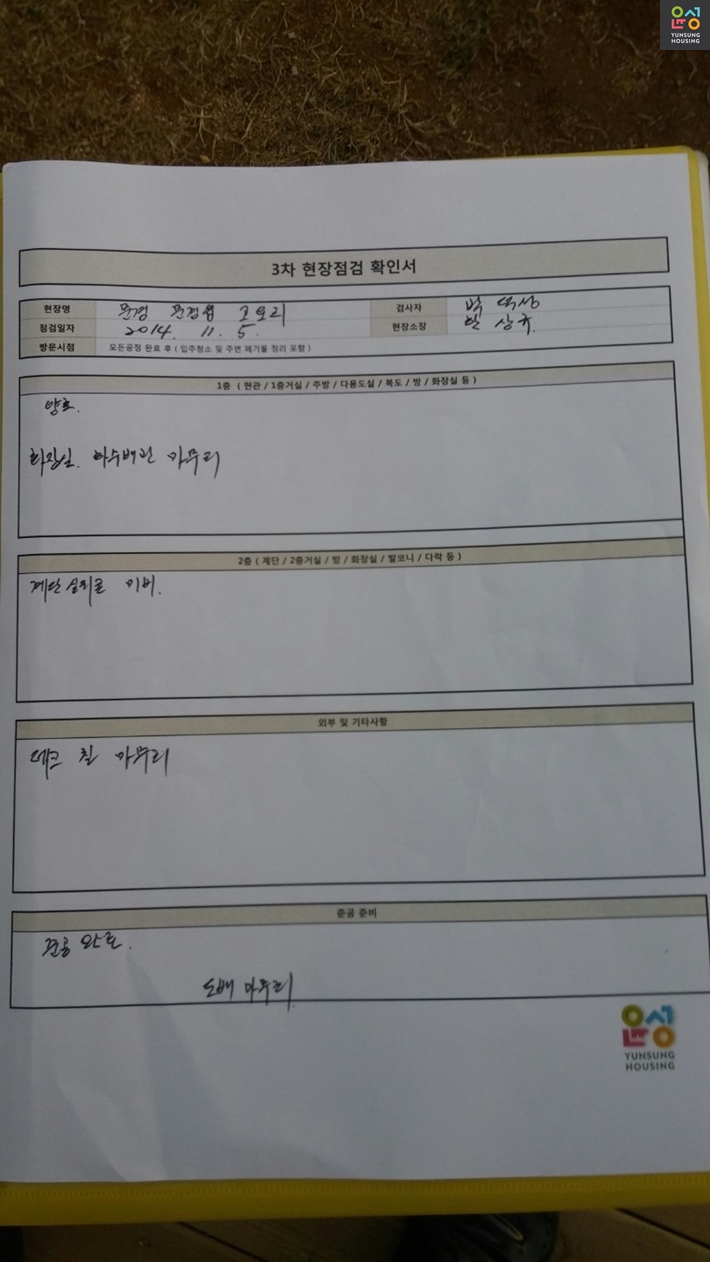 윤성
YUNSUNG
HOUSING
3차 현장점검 확인서
현장명 문경 문경읍 고요리 검사자 박
점검일자 2014. 11. 5. 현장소장 상규.
방문시점 모든공정 완료 후 ( 입주청소 및 주변 폐기물 정리 포함 )
1층 ( 현관 / 1층거실 / 주방 / 다용도실 / 복도 / 방 / 화장실 등 )
양호.
화장실. 하수배관 마무리
2층 ( 계단 / 2층거실 / 방 / 화장실 / 발코니 / 다락 등 )
계단 실리콘 미비.
외부 및 기타사항
데크 칠 마무리
준공 준비
준공 완료.
도배 마무리
윤성
YUNSUNG
HOUSING